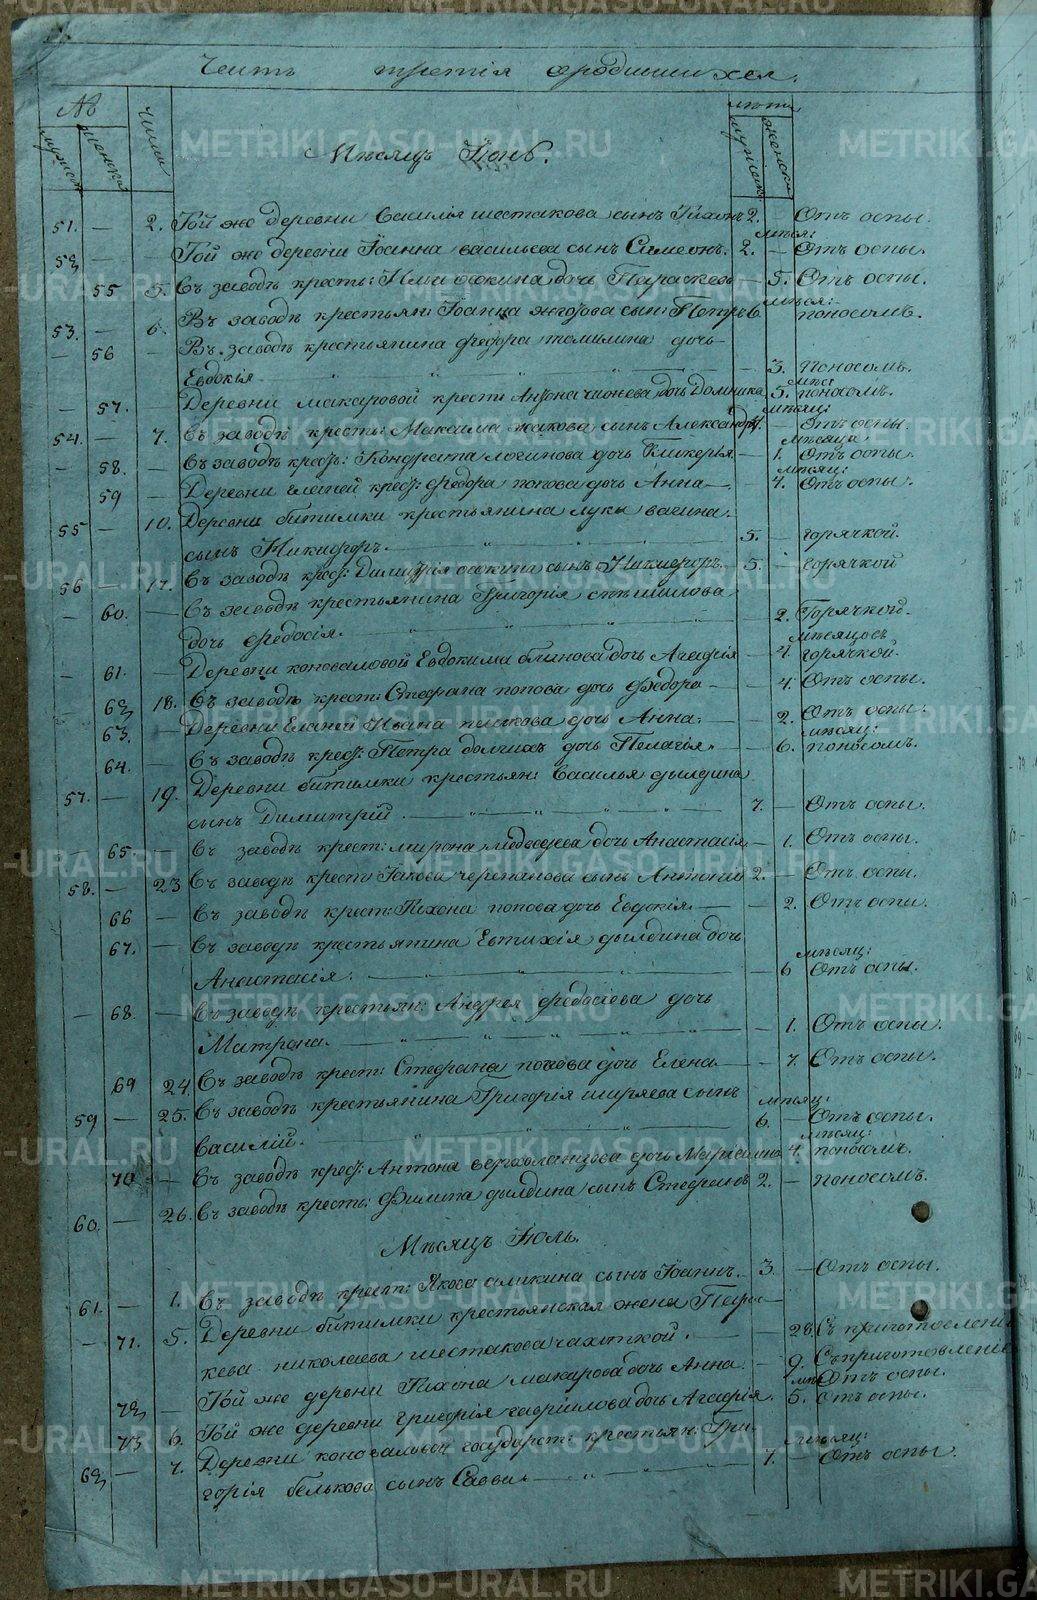 Часть третія
№
Числа
Лѣта
мужеск
женска
мужеск
женска
Мѣсяцъ Іюнь.
51. — 2. Той же деревни Василья шестакова сынъ Тихонъ 2. — Отъ оспы.
мѣся:
52 — — Той же деревни Іоанна васильева сынъ Симеонъ. 2. — Отъ оспы.
— 55 5. Въ заводѣ кресть: дочь Параскева — 5. Отъ оспы.
мѣся:
53. — 6. Въ заводѣ крестьян: Іоанна сынъ Петръ 6. поносомъ.
— 56 — Въ заводѣ крестьянина Федора томилина дочь
Евдокія — 3. Поносомъ.
мѣся
— 57. — Деревни макаровой кресть: дочь Домника 5. поносомъ.
мѣсяц:
54. — 7. Въ заводѣ кресть: Максима сынъ Александръ — Отъ оспы.
мѣсяца
— 58. — Въ заводѣ крест: Кондрата логинова дочь Гликерья — 1. Отъ оспы.
мѣсяц:
59 — Деревни крест: Федора попова дочь Анна — 4. Отъ оспы.
55 — 10. Деревни битимки крестьянина луки вагина
сынъ Никифоръ. 5. — горячкой.
56 — 17. Въ заводѣ крест: Димитрія сынъ Никифоръ. 5. — горячкой
— 60. — Въ заводѣ крестьянина Григорія
дочь Федосія. — 2. Горячкой.
мѣсяцовъ
— 61. — Деревни коноваловой Евдокима блинова дочь Агафія — 4. горячкой.
62 18. Въ заводѣ крест: Стефана попова дочь Федора — 4. Отъ оспы.
63. Деревни Ивана дочь Анна. — 2. Отъ оспы.
мѣсяц:
64. — Въ заводѣ крест: Петра дочь Пелагія. — 6. поносомъ.
57. — 19. Деревни битимки крестьян: Василья дылдина
сынъ Димитрий. 7. — Отъ оспы.
65. — Въ заводѣ крест: мирона медведева дочь Анастасія — 1. Отъ оспы.
58. — 23 Въ заводѣ крест: Іакова черепанова сынъ Антоній 2. — Отъ оспы.
66 — Въ заводѣ крест: Тихона попова дочь Евдокія. — 2. Отъ оспы.
67. — Въ заводѣ крестьянина Евтихія дылдина дочь
мѣсяц:
Анастасія. — 6 Отъ оспы.
— 68. — Въ заводѣ крестьян: Андрея федосіева дочь
Матрона. — 1. Отъ оспы.
69 24. Въ заводѣ крест: Стефана попова дочь Елена — 7. Отъ оспы.
59 — 25. Въ заводѣ крестьянина Григорія ширяева сынъ
мѣсяц:
Василій. 6. — Отъ оспы.
мѣсяц:
70 — Въ заводѣ крест: Антона дочь 4. поносомъ.
60. — 26. Въ заводѣ кресть: Филипа дылдина сынъ Стефанъ 2. — поносомъ.
Мѣсяцъ Іюль.
61. — 1. Въ заводѣ крест: Якова аликина сынъ Іоаннъ. 3. — Отъ оспы.
— 71. 5. Деревни битимки крестьянская жена Парас-
кева николаева шестакова чахоткой. — 28. Съ приготовлені
72 — Той же дерени Тихона макарова дочь Анна. — 9. Съ приготовление
мѣс Отъ оспы.
73 6. Той же деревни григорія гавриилова дочь Агафія. 5. Отъ оспы.
мѣсяц:
62 — 7. Деревни коноваловой государст: крестьян: Гри-
горія белькова сынъ Савва. 7. — Отъ оспы.